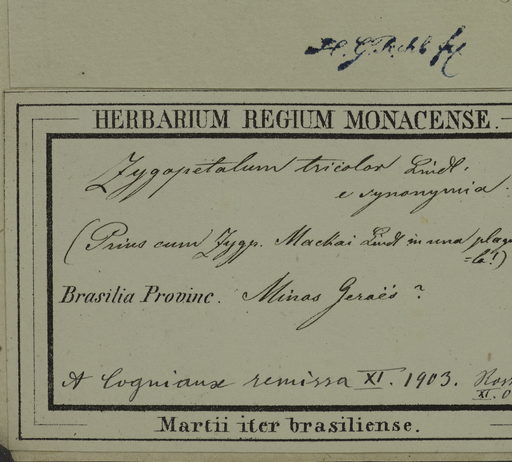 H. G. Rchb fil
HERBARIUM REGIUM MONACENSE.
Zygopetalum tricolor Lindl.
e synonymia.
(Prius cum Zygp. Mackai Lindl in una plagu
=la!)
Brasilia Provinc. Minas Geraës?
A Cogniaux remissa XI. 1903.
XI.0
Martii iter brasiliense.